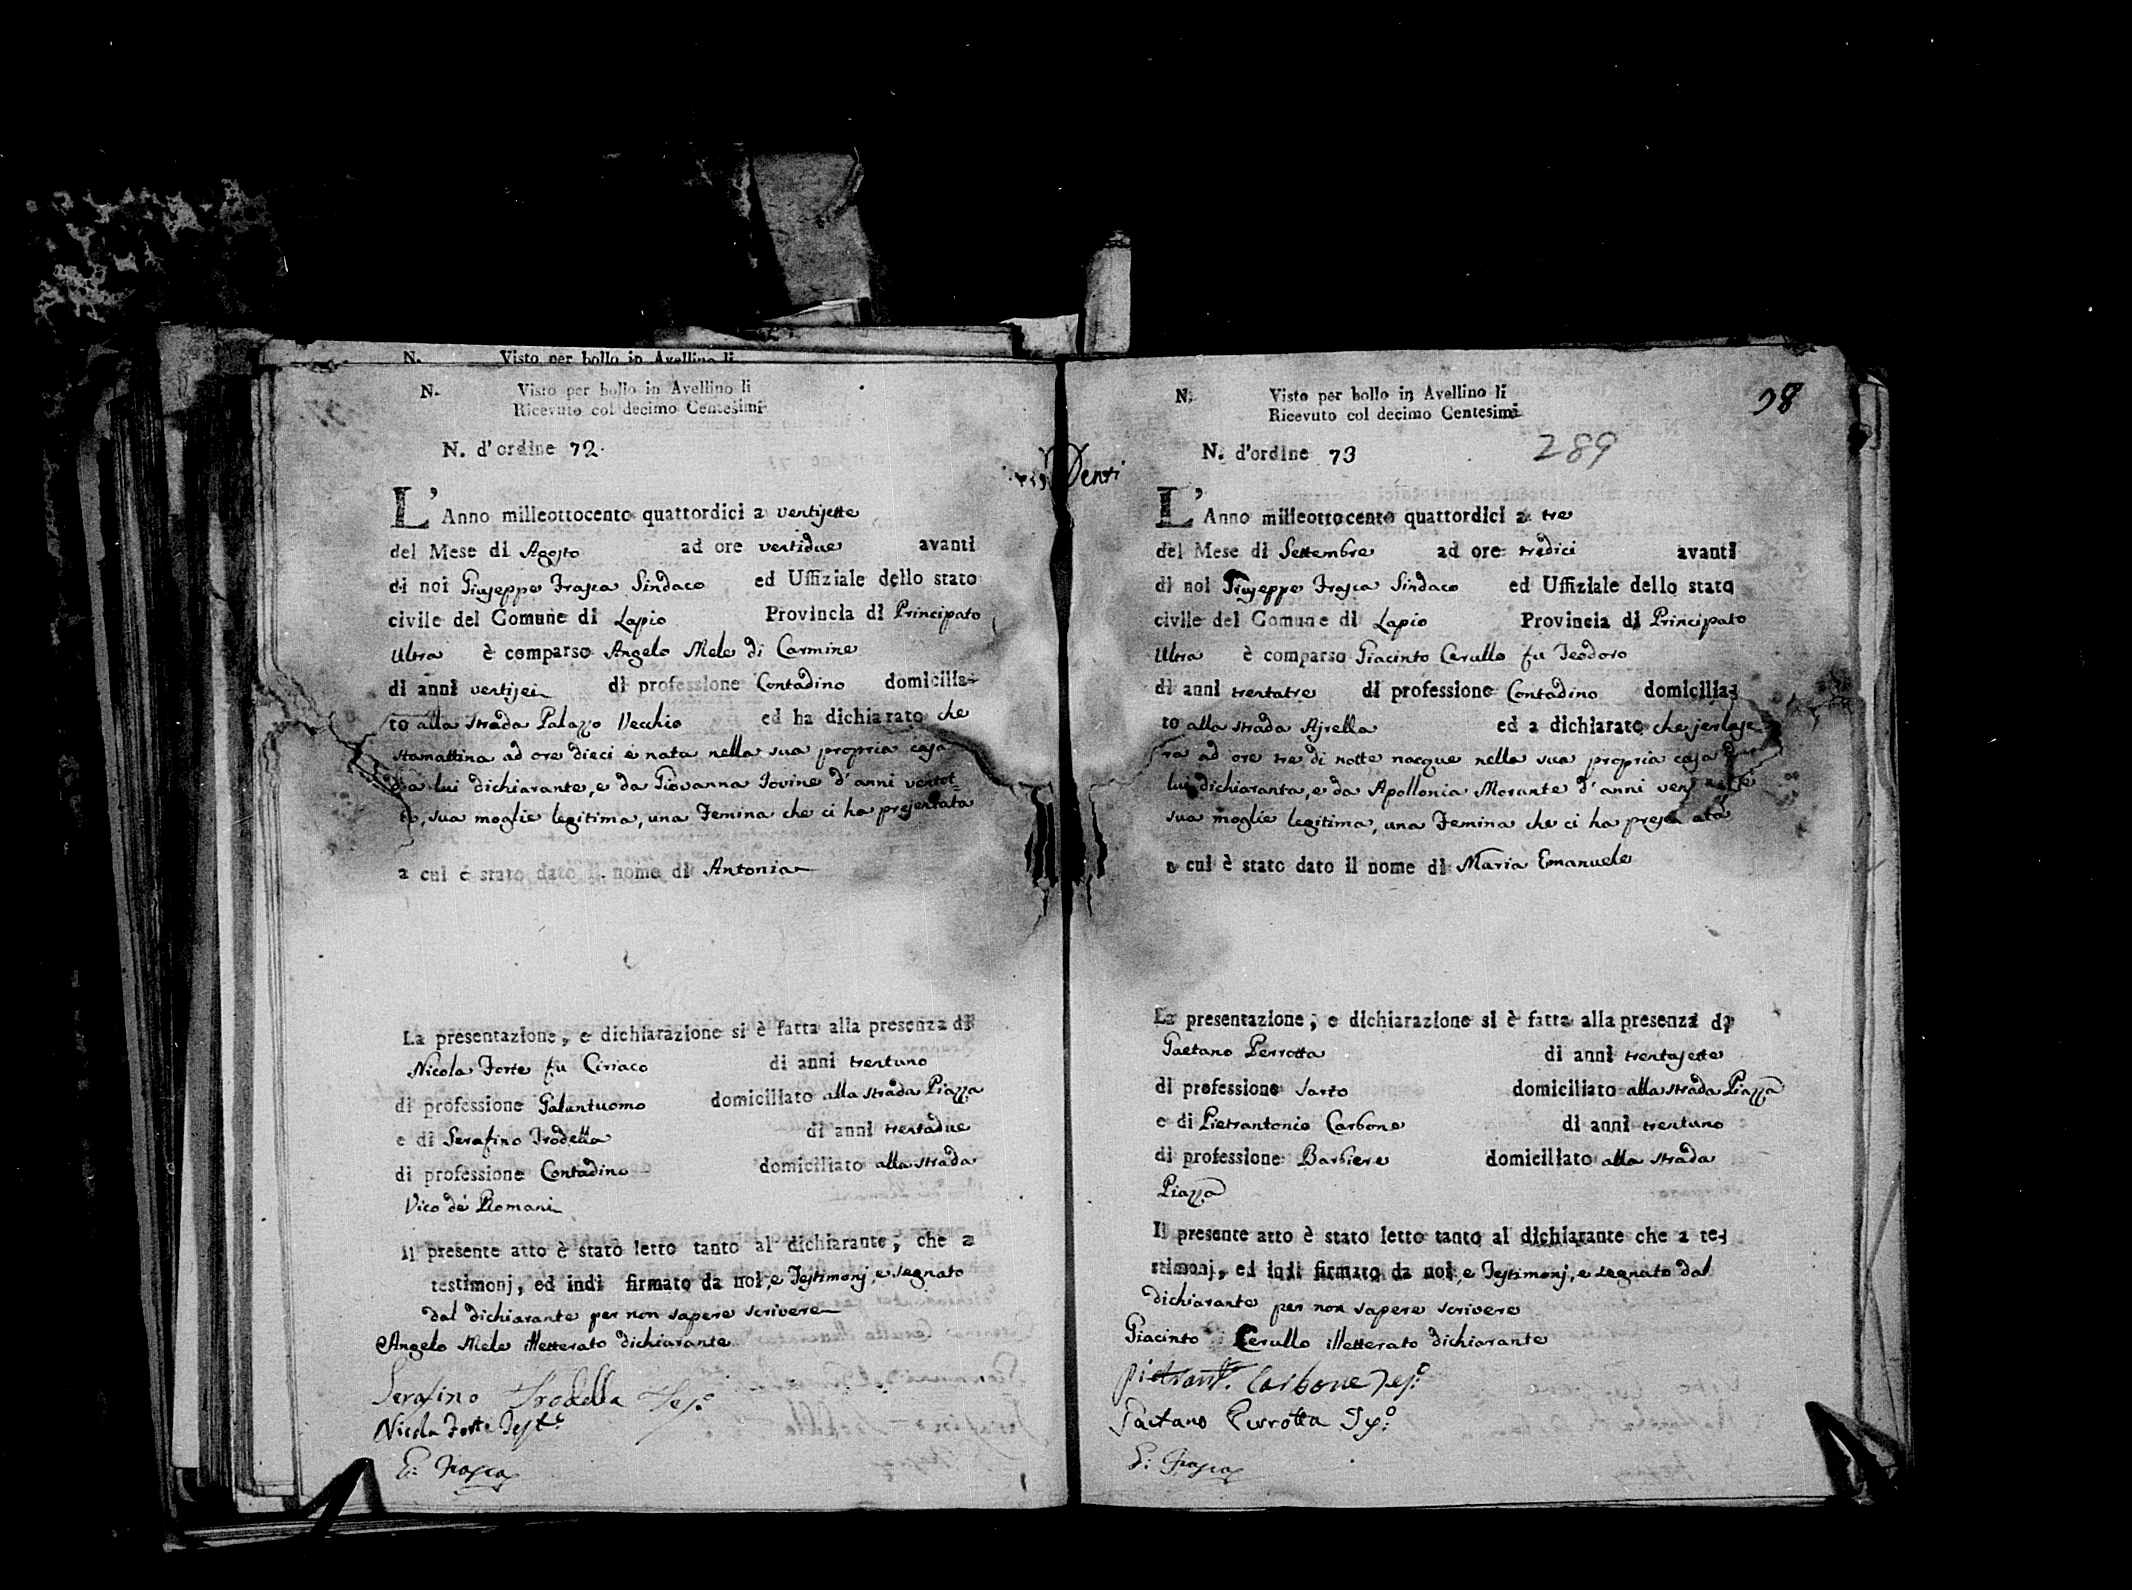 N. Visto per bollo in Avellino li
N. Visto per bollo in Avellino li
Ricevuto col decimo Centesimi
N. d'ordine 72.
L'Anno milleottocento quattordici a ventisette
del Mese di Agosto ad ore ventidue avanti
di noi Giuseppe Frasca Sindaco ed Uffiziale dello stato
civile del Comune di Lapio Provincia di Principato
Ultra è comparso Angelo Mele di Carmine
di anni ventisei di professione Contadino domicilia-
to alla strada Palazzo Vecchio ed ha dichiarato che
stamattina ad ore dieci è nata nella sua propria casa
da lui dichiarante, e da Giovanna Iovine d'anni ventot=
to, sua moglie legitima, una Femina che ci ha presentata
a cui é stato dato il nome di Antonia
La presentazione, e dichiarazione si è fatta alla presenza di
Nicola Forte fu Ciriaco di anni trentuno
di professione Galantuomo domiciliato alla strada Piazza
e di Serafino Trodella di anni trentadue
di professione Contadino domiciliato alla strada
Vico de' Romani
Il presente atto è stato letto tanto al dichiarante, che a
testimonj, ed indi firmato da noi, e Testimonj, e segnato
dal dichiarante per non sapere scrivere
Angelo Mele illetterato dichiarante
Serafino Trodella Tes.º
Nicola Forte Test.º
G: Frasca
Denti
N. Visto per bollo in Avellino li
Ricevuto col decimo Centesimi
98
N. d'ordine 73
289
L'Anno milleottocento quattordici a tre
del Mese di Settembre ad ore tredici avanti
di noi Giuseppe Frasca Sindaco ed Uffiziale dello stato
civile del Comune di Lapio Provincia di Principato
Ultra è comparso Giacinto Cerullo fu Teodoro
di anni trentatre di professione Contadino domicilia-
to alla strada Ajrella ed a dichiarato che jerlase
ra ad ore tre di notte nacque nella sua propria casa da
lui dichiaranta, e da Apollonia Morante d'anni ven
sua moglie legitima, una Femina che ci ha presentata
a cui è stato dato il nome di Maria Emanuele
La presentazione, e dichiarazione si è fatta alla presenza di
Gaetano Perrotta di anni trentasette
di professione Sarto domiciliato alla strada Piazza
e di Pietrantonio Carbone di anni trentuno
di professione Barbiere domiciliato alla strada
Piazza
Il presente atto è stato letto tanto al dichiarante che a te-
stimonj, ed indi firmato da noi, e Testimonj, e segnato dal
dichiarante per non sapere scrivere
Giacinto Cerullo illetterato dichiarante
Pietrant.º Carbone Tes.º
Gaetano Perrotta Tes.º
G: Frasca